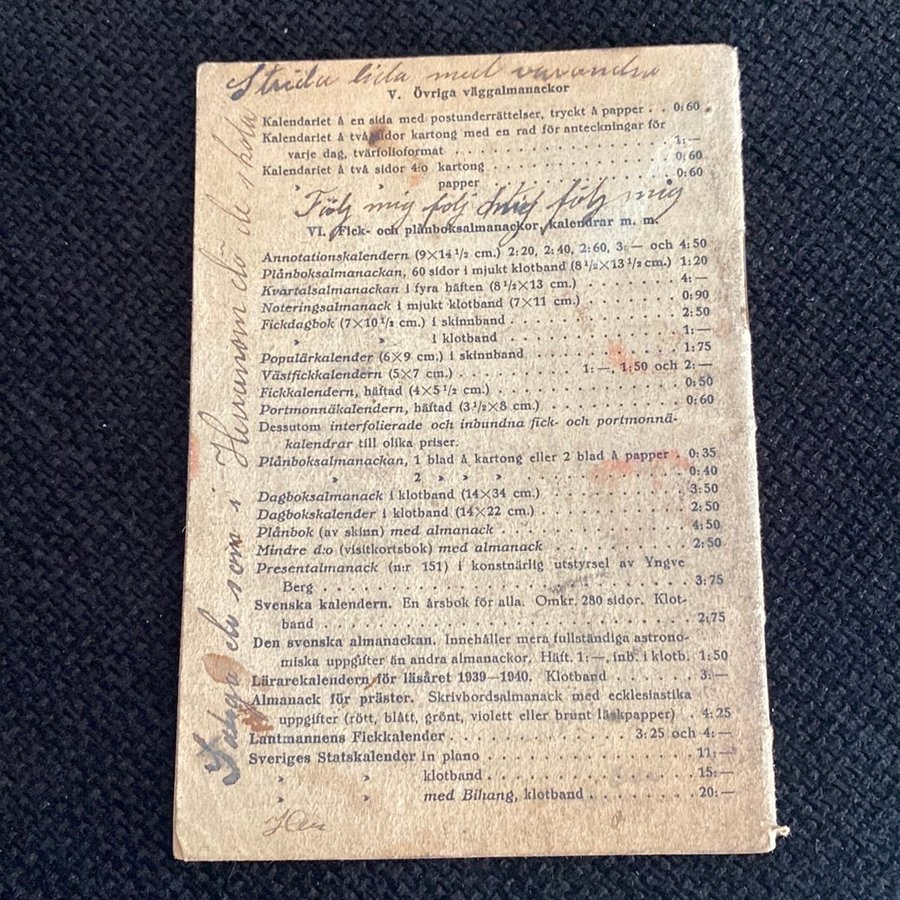 Strida lida med varandra
V. Övriga väggalmanackor
Kalendariet å en sida med postunderrättelser, tryckt å papper . . 0:60
Kalendariet å två sidor kartong med en rad för anteckningar för
varje dag, tvärfolioformat . . . . . . . . . . . . . . . . . 1:—
Kalendariet å två sidor 4:o kartong . . . . . . . . . . . . . . 0:60
» » papper . . . . . . . . . . . . . . 0:60
Följ mig följ följ mig
VI. Fick- och plånboksalmanackor, kalendrar m. m.
Annotationskalendern (9×14 1/2 cm.) 2:20, 2:40, 2:60, 3:— och 4:50
Plånboksalmanackan, 60 sidor i mjukt klotband (8 1/2×13 1/2 cm.) 1:20
Kvartalsalmanackan i fyra häften (8 1/2×13 cm.) . . . . . . . 4:—
Noteringsalmanack i mjukt klotband (7×11 cm.) . . . . . . . 0:90
Fickdagbok (7×10 1/2 cm.) i skinnband . . . . . . . . . . . . 2:50
» » i klotband . . . . . . . . . . . . 1:—
Populärkalender (6×9 cm.) i skinnband . . . . . . . . . . . 1:75
Västfickkalendern (5×7 cm.) . . . . . . . . 1:—, 1:50 och 2:—
Fickkalendern, häftad (4×5 1/2 cm.) . . . . . . . . . . . . . 0:50
Portmonnäkalendern, häftad (3 1/2×8 cm.) . . . . . . . . . . 0:60
Dessutom interfolierade och inbundna fick- och portmonnä-
kalendrar till olika priser.
Plånboksalmanackan, 1 blad å kartong eller 2 blad å papper . 0:35
» 2 » » » . . . . . . . . 0:40
Dagboksalmanack i klotband (14×34 cm.) . . . . . . . . . . 3:50
Dagbokskalender i klotband (14×22 cm.) . . . . . . . . . . 2:50
Plånbok (av skinn) med almanack . . . . . . . . . . . . . . 4:50
Mindre d:o (visitkortsbok) med almanack . . . . . . . . . . 2:50
Presentalmanack (n:r 151) i konstnärlig utstyrsel av Yngve
Berg . . . . . . . . . . . . . . . . . . . . . . . . . . . 3:75
Svenska kalendern. En årsbok för alla. Omkr. 280 sidor. Klot-
band . . . . . . . . . . . . . . . . . . . . . . . . . . . 2:75
Den svenska almanackan. Innehåller mera fullständiga astrono-
miska uppgifter än andra almanackor. Häft. 1:—, inb. i klotb. 1:50
Lärarekalendern för läsåret 1939—1940. Klotband . . . . . . 3:—
Almanack för präster. Skrivbordsalmanack med ecklesiastika
uppgifter (rött, blått, grönt, violett eller brunt läskpapper) . 4:25
Lantmannens Fickkalender . . . . . . . . . . . 3:25 och 4:—
Sveriges Statskalender in plano . . . . . . . . . . . . . . . 11:—
» » klotband . . . . . . . . . . . . . . . 15:—
» » med Bihang, klotband . . . . . . . . 20:—
som i dö de skola